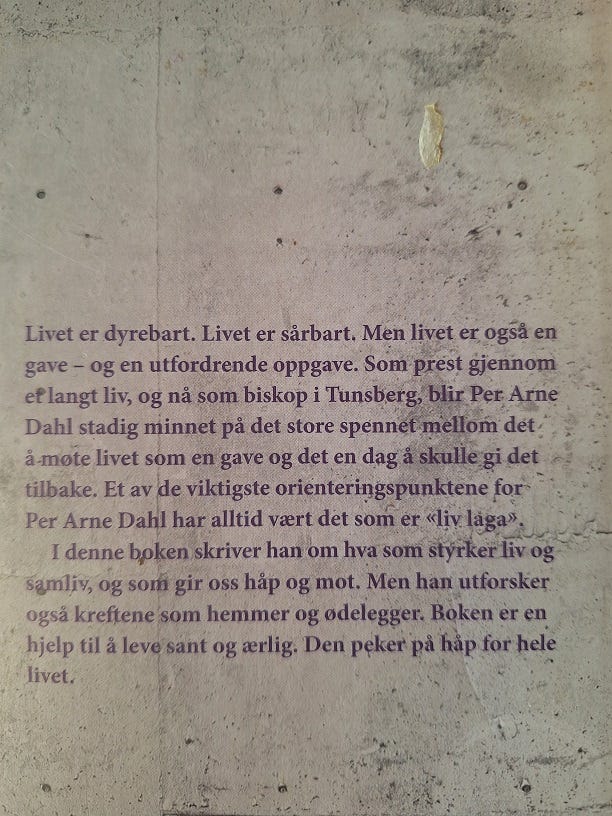 Livet er dyrebart. Livet er sårbart. Men livet er også en
gave – og en utfordrende oppgave. Som prest gjennom
et langt liv, og nå som biskop i Tunsberg, blir Per Arne
Dahl stadig minnet på det store spennet mellom det
å møte livet som en gave og det en dag å skulle gi det
tilbake. Et av de viktigste orienteringspunktene for
Per Arne Dahl har alltid vært det som er «liv laga».
I denne boken skriver han om hva som styrker liv og
samliv, og som gir oss håp og mot. Men han utforsker
også kreftene som hemmer og ødelegger. Boken er en
hjelp til å leve sant og ærlig. Den peker på håp for hele
livet.